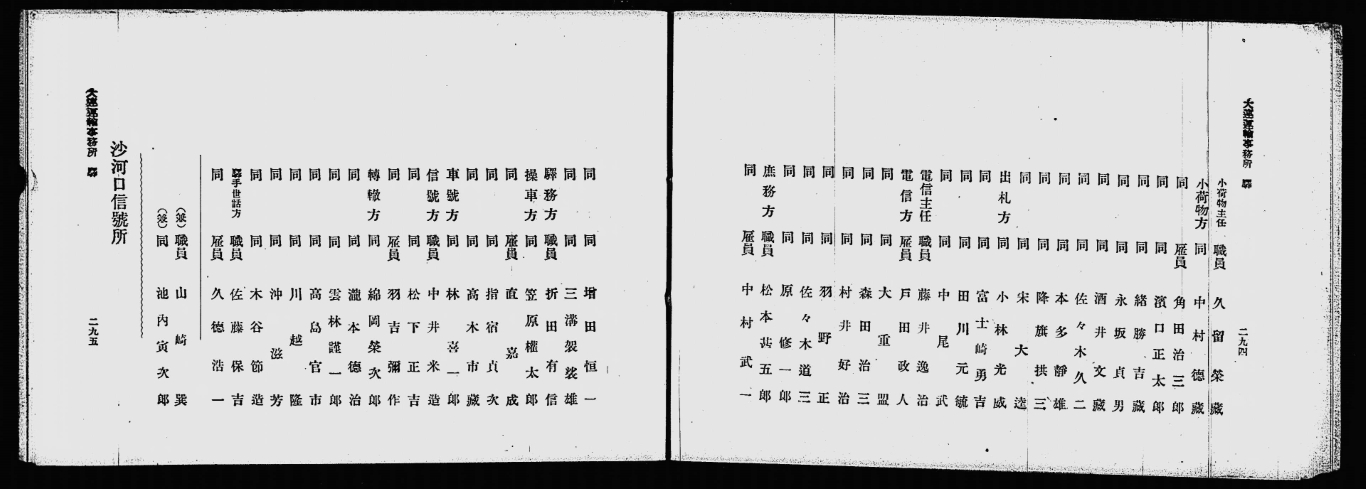 大連運輸事務所 驛
二九四
小荷物主任 職員 久留榮藏
小荷物方 同 中村德藏
同 雇員 角田治三郎
同 同 濱口正太郎
同 同 永坂貞男
同 同 緒勝吉藏
同 同 酒井文藏
同 同 佐々木久二
同 同 本多靜雄
同 同 降旗拱三
同 同 宋大逵
出札方 同 小林光威
同 同 富士崎勇吉
同 同 田川元毓
同 同 中尾武
電信主任 職員 藤井逸治
電信方 雇員 戸田政人
同 同 大重盟
同 同 森田治三
同 同 村井好治
同 同 羽野正
同 同 佐々木道三
同 同 原修一郎
庶務方 職員 松本甚五郎
同 雇員 中村武一
同 同 増田恒一
同 同 三溝袈裟雄
驛務方 職員 折田有信
操車方 同 笠原權太郎
同 雇員 直嘉成
同 同 指宿貞次
同 同 高木市藏
車號方 同 林喜一郎
信號方 職員 中井米造
同 同 松下正吉
同 雇員 羽吉彌作
轉轍方 同 綿岡榮次郎
同 同 瀧本德治
同 同 雲林謹一郎
同 同 高島官市
同 同 川越隆
同 同 沖滋芳
同 同 木谷節造
驛手世話方 職員 佐藤保吉
同 雇員 久德浩一
（派） 職員 山崎巽
（派） 同 池內寅次郎
沙河口信號所
大連運輸事務所 驛
二九五